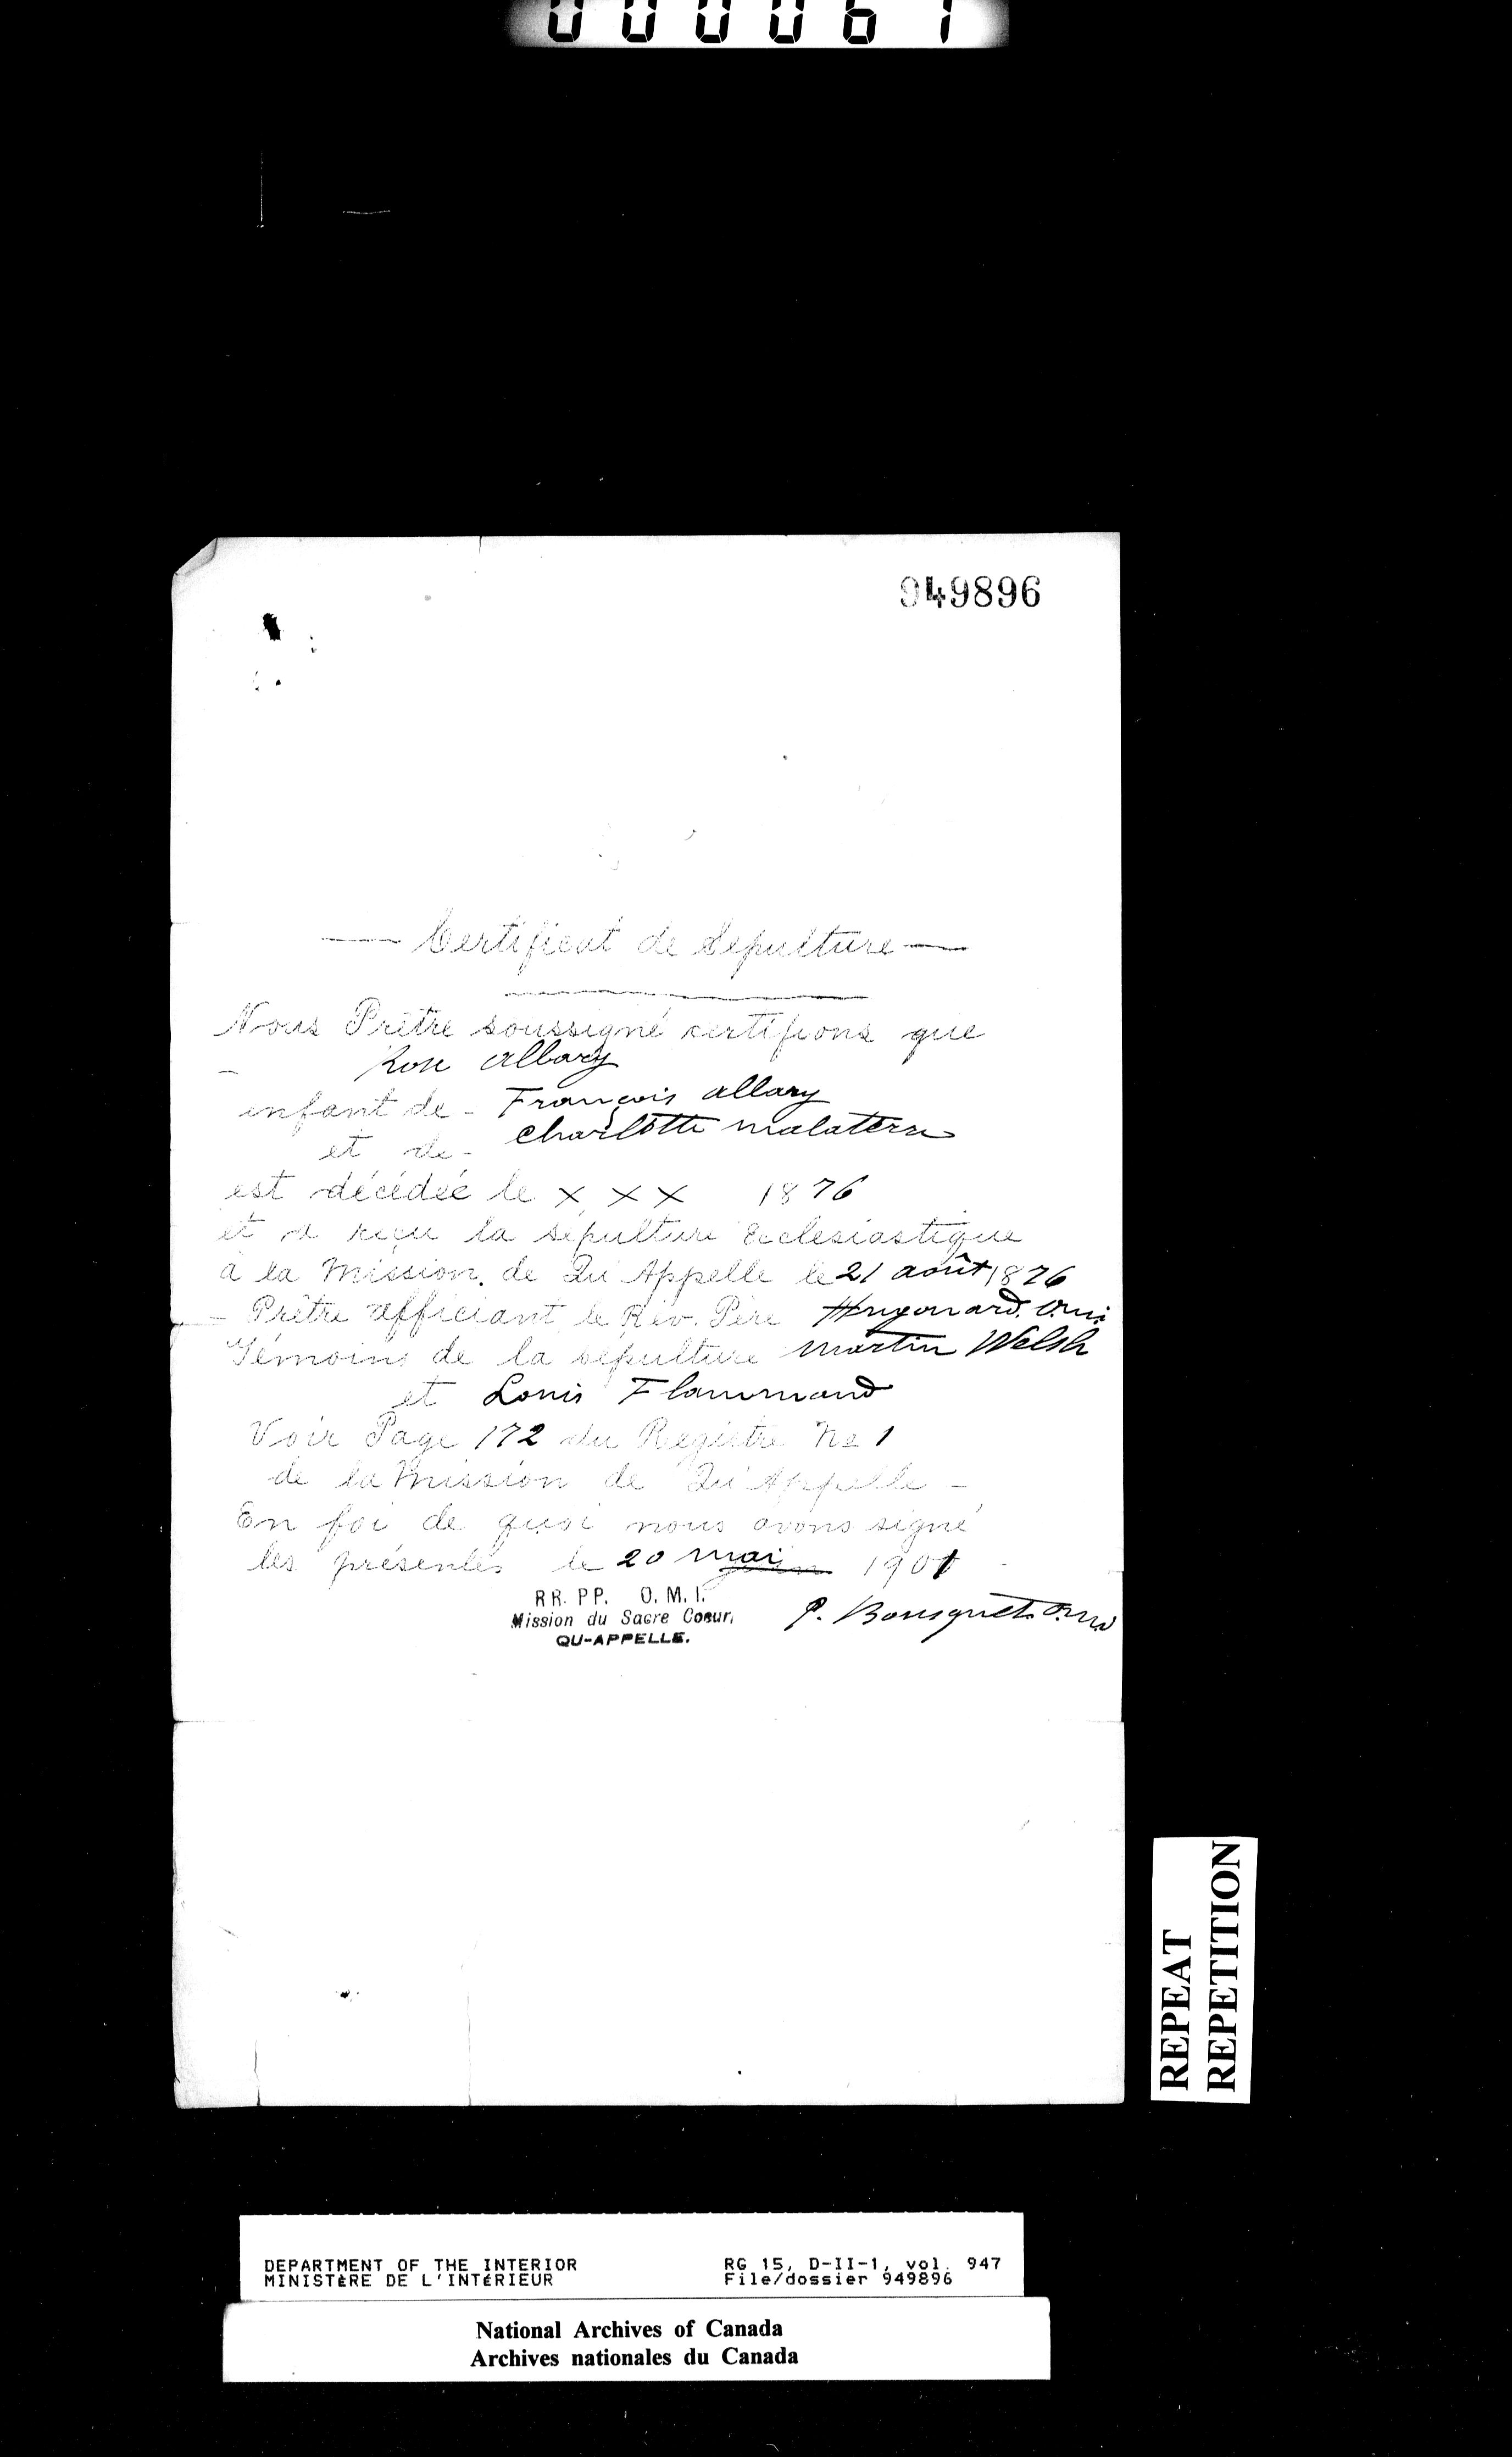 000061
949896
— Certificat de Sépulture —
Nous Prêtre soussigné certifions que
Rose Allary
enfant de - François Allary
et de - Charlotte Malaterre
est décédée le x x x 1876
et a reçu la sépulture Ecclésiastique
à la Mission de Qu'Appelle le 21 août 1876
Prêtre officiant le Rév. Père Hugonard. O.m.i.
Témoins de la sépulture Martin Welsh
et Louis Flammand
Voir Page 172 du Registre No 1
de la Mission de Qu'Appelle -
En foi de quoi nous avons signé
les présentes le 20 mai 1901
RR. PP. O. M. I.
Mission du Sacre Coeur,
QU-APPELLE.
P. Bousquet o.m.i
REPEAT
REPETITION
DEPARTMENT OF THE INTERIOR RG 15, D-II-1, vol. 947
MINISTÈRE DE L'INTÉRIEUR File/dossier 949896
National Archives of Canada
Archives nationales du Canada